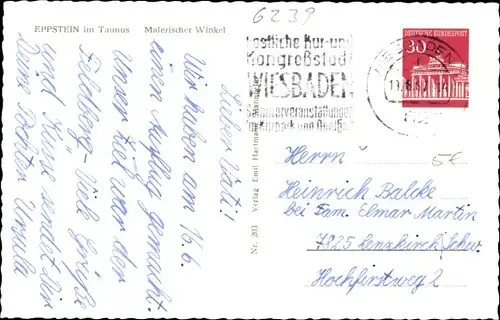 6239
EPPSTEIN im Taunus Malerischer Winkel
Lieber Vati!
Wir haben am 16.6.
einen Ausflug gemacht.
Unser Ziel war der
Feldberg. Viele Grüße
und Küsse sendet Dir
Deine Tochter Ursula
Nr. 203 Verlag Emil Hartmann, Mannheim
Festliche Kur- und
Kongreßstadt
WIESBADEN
Sommerveranstaltungen
WIESBADEN
DEUTSCHE BUNDESPOST
30
5€
Herrn
Heinrich Balcke
bei Fam. Elmar Martin
7825 Lenzkirch/Schw.
Hochfirstweg 2